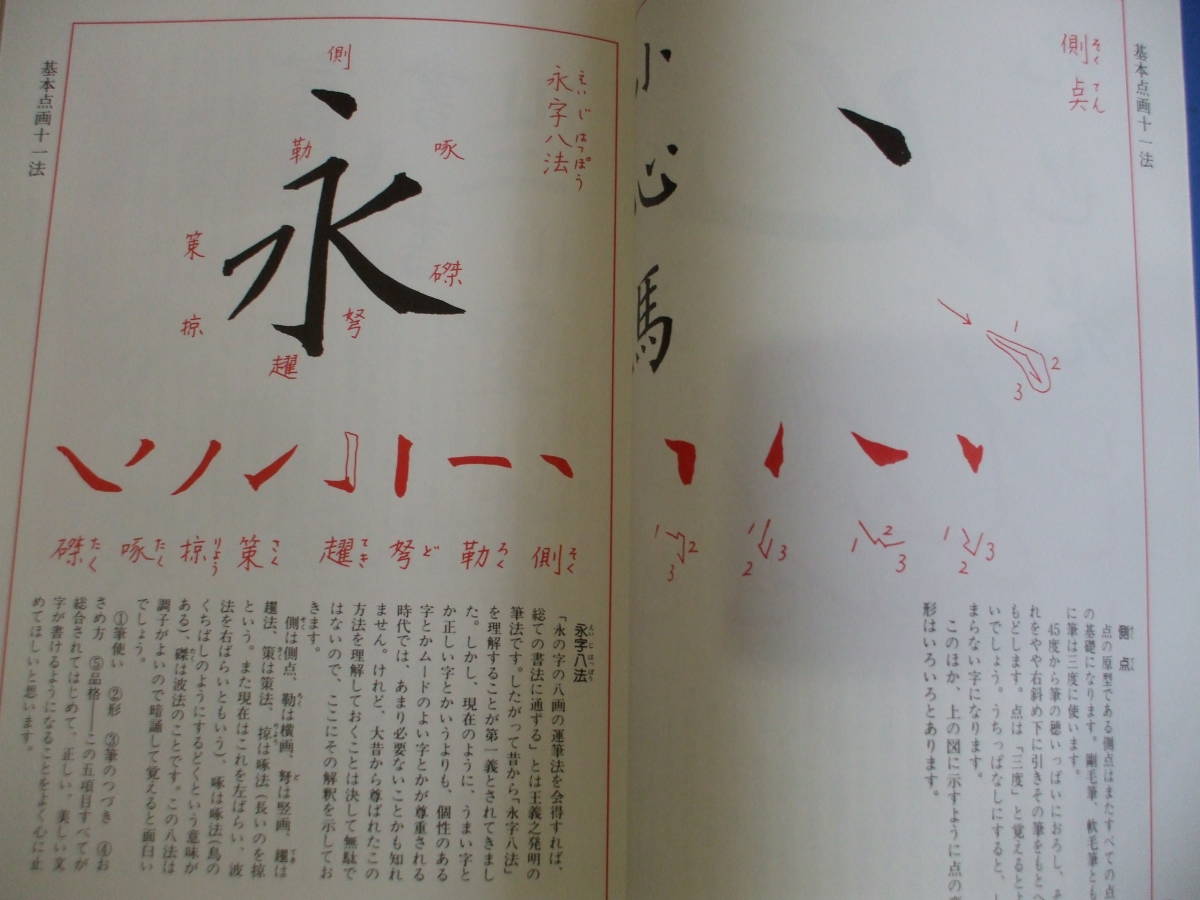 基本点画十一法
側点
そくてん
小
心
馬
1
2
3
1 2 3
1 2 3
1 2 3
1 2 3
側点
そくてん
点の原型である側点はまたすべての点
の基礎になります。剛毛筆、軟毛筆とも
に筆は三度に使います。
45度から筆の聴いっぱいにおろし、そ
れをやや右斜め下に引きその筆をもとへ
もどします。点は「三度」と覚えるとよ
いでしょう。うちっぱなしにすると、し
まらない字になります。
このほか、上の図に示すように点の
形はいろいろとあります。
永字八法
えいじはっぽう
側
勒
啄
永
策
磔
掠
弩
趯
側 そく
勒 ろく
弩 ど
趯 てき
策 さく
掠 りょう
啄 たく
磔 たく
永字八法
えいじはっぽう
「永の字の八画の運筆法を会得すれば、
総ての書法に通ずる」とは王義之発明の
筆法です。したがって昔から「永字八法」
を理解することが第一義とされてきまし
た。しかし、現在のように、うまい字と
か正しい字とかいうよりも、個性のある
字とかムードのよい字とかが尊重される
時代では、あまり必要ないことかも知れ
ません。けれど、大昔から尊ばれたこの
方法を理解しておくことは決して無駄で
はないので、ここにその解釈を示してお
きます。
側は側点、勒は横画、弩は竪画、趯は
趯法、策は策法、掠は啄法（長いのを掠
という。また現在はこれを左ばらい、波
法を右ばらいともいう）、啄は啄法（鳥の
くちばしのようにするどくという意味が
ある）、磔は波法のことです。この八法は
調子がよいので暗誦して覚えると面白い
でしょう。
①筆使い ②形 ③筆のつづき ④お
さめ方 ⑤品格——この五項目すべてが
総合されてはじめて、正しい、美しい文
字が書けるようになることをよく心に止
めてほしいと思います。
基本点画十一法